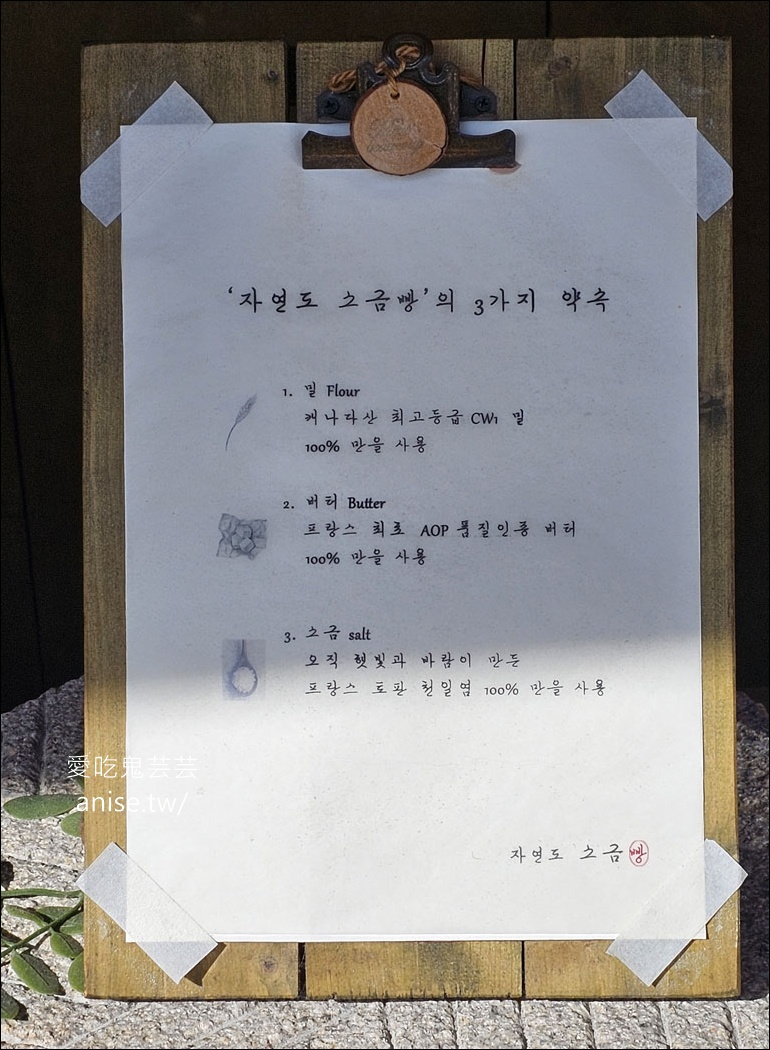 ‘자연도 소금빵’의 3가지 약속
1. 밀 Flour
캐나다산 최고등급 CW1 밀
100% 만을 사용
2. 버터 Butter
프랑스 최초 AOP 품질인증 버터
100% 만을 사용
3. 소금 salt
오직 햇빛과 바람이 만든
프랑스 토판 천일염 100% 만을 사용
愛吃鬼芸芸
anise.tw/
자연도 소금빵